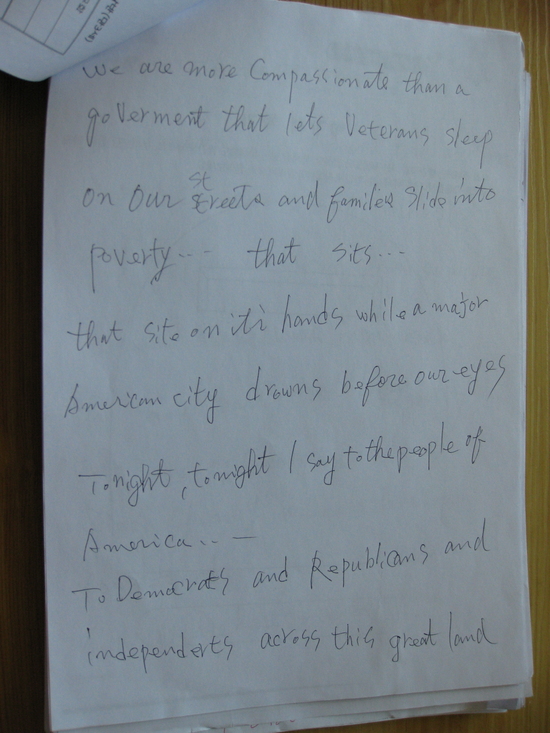 We are more Compassionate than a
goverment that lets Veterans sleep
on our streets and families slide into
poverty... that sits...
that sits on its hands while a major
American city drowns before our eyes
Tonight, tonight I say to the people of
America...
To Democrats and Republicans and
independents across this great land